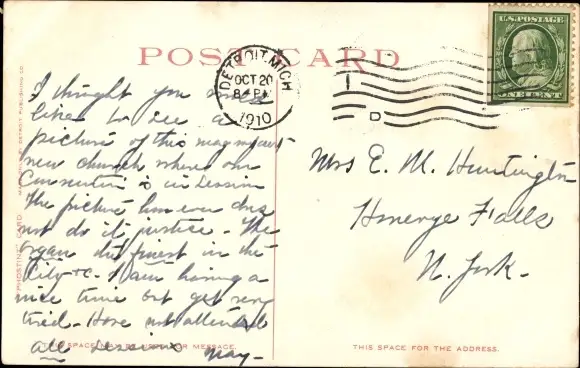 POST CARD
DETROIT, MICH
OCT 20
8 - PM
1910
D
U.S. POSTAGE
ONE CENT
I thought you would
like to see a
picture of this magnificent
new church where our
Convention is in session
The picture however does
not do it justice - The
organ the finest in the
City &c. I am having a
nice time but get very
tired - Have not attended
all sessions May -
Mrs E. M. Huntington
Honeoye Falls
N. York -
THIS SPACE MAY BE USED FOR MESSAGE.
THIS SPACE FOR THE ADDRESS.
"PHOSTINT" CARD
DETROIT PUBLISHING CO.